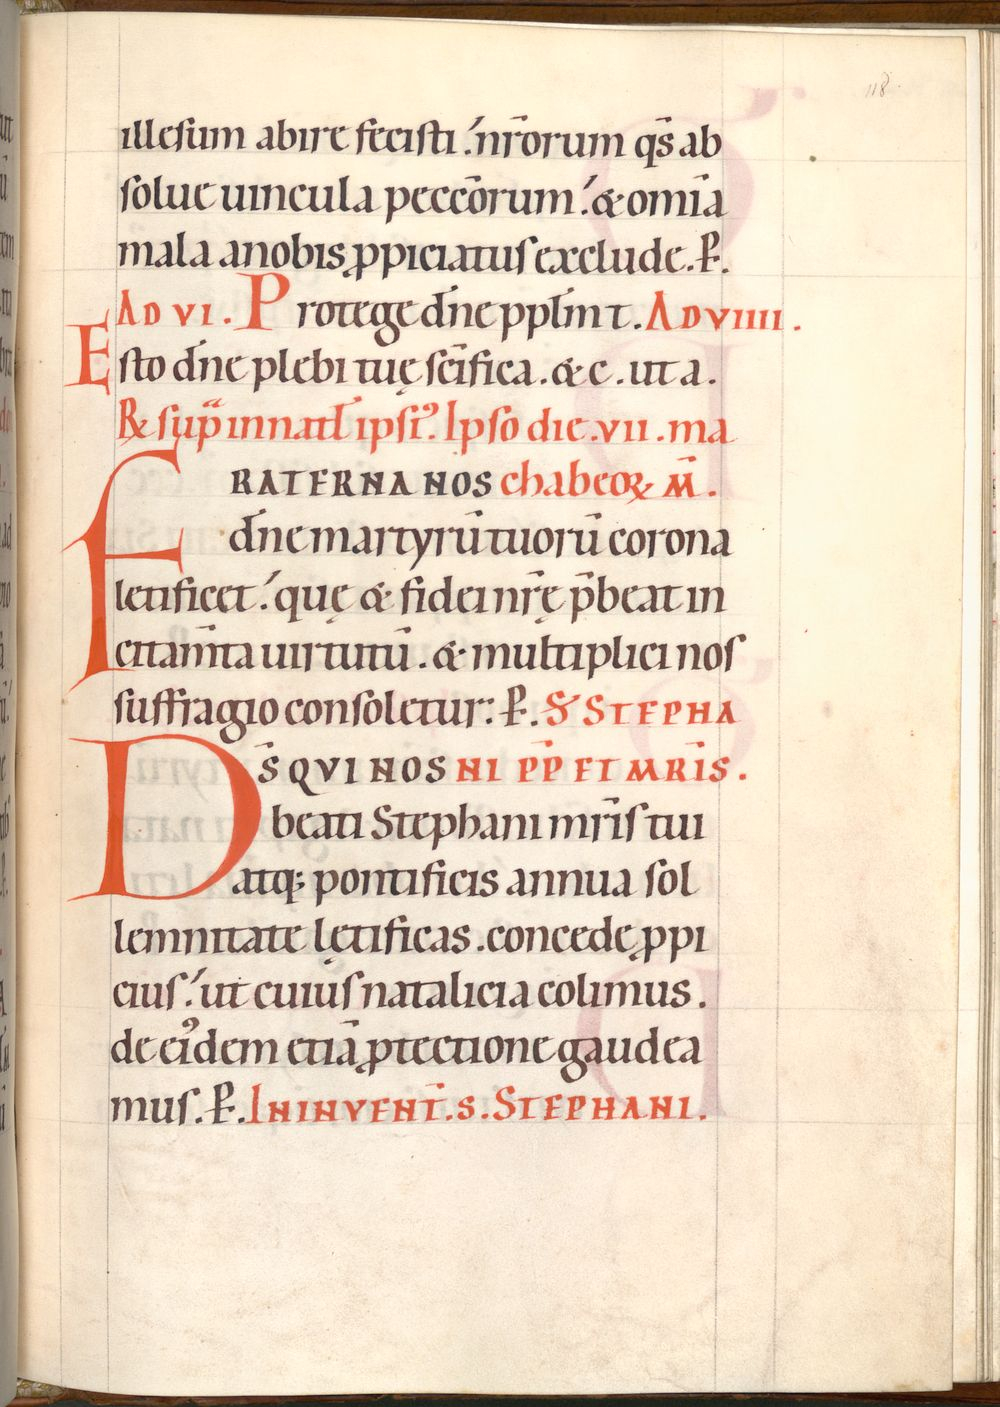 118
illesum abire fecisti .́ nr̄orum qs̄ ab
solue uincula peccōrum .́ & omīa
mala anobis ꝓpiciatus exclude. P̄.
AD VI. Protege dn̄e ppl̄m t. AD VIIII.
Esto dn̄e plebi tuę scīfica. & c. ut a.
R& sup̄ in natl̄ ipsi᾽. Ipso die .vii. ma
FRATERNA NOS chabeoꝝ M̄.
dn̄e martyrū tuorū corona
letificet .́ quę & fidei nr̄ę p̄beat in
citam̄ta uirtutū. & multiplici nos
suffragio consoletur: P̄. S̄ STEPHA
DS̄ QVI NOS NI PP̄ ET MR̄IS.
beati Stephani mr̄is tui
atq; pontificis annua sol
lemnitate lętificas. concede ꝓpi
cius .́ ut cuius natalicia colimus.
de ei᾽dem etiā ꝓtectione gaudea
mus. P̄. IN INVENT̄. S. STEPHANI.